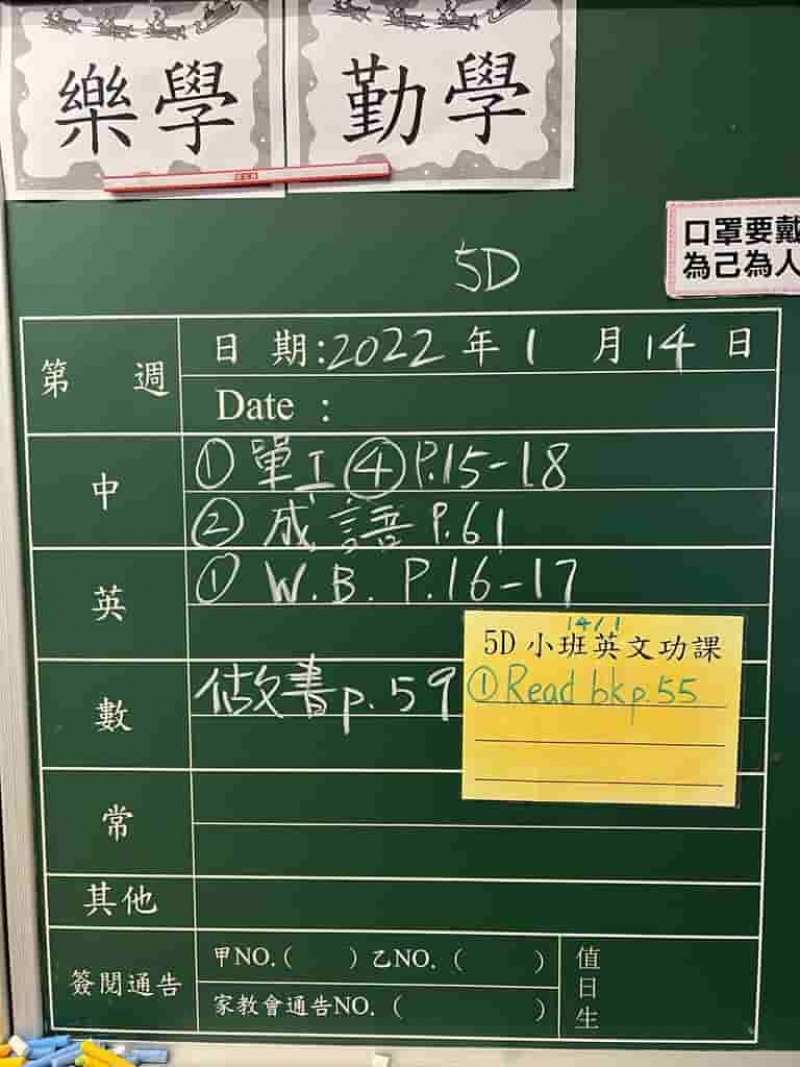 樂學
勤學
口罩要戴
為己為人
5D
第 週
日 期:2022年1月14日
Date :
中
①單工④P.15-18
②成語 P.61
英
①W.B. P.16-17
14/1
5D 小班英文功課
①Read bk p.55
數
做書p.59
常
其他
簽閱通告
甲NO.( ) 乙NO.( )
家教會通告NO.( )
值日生